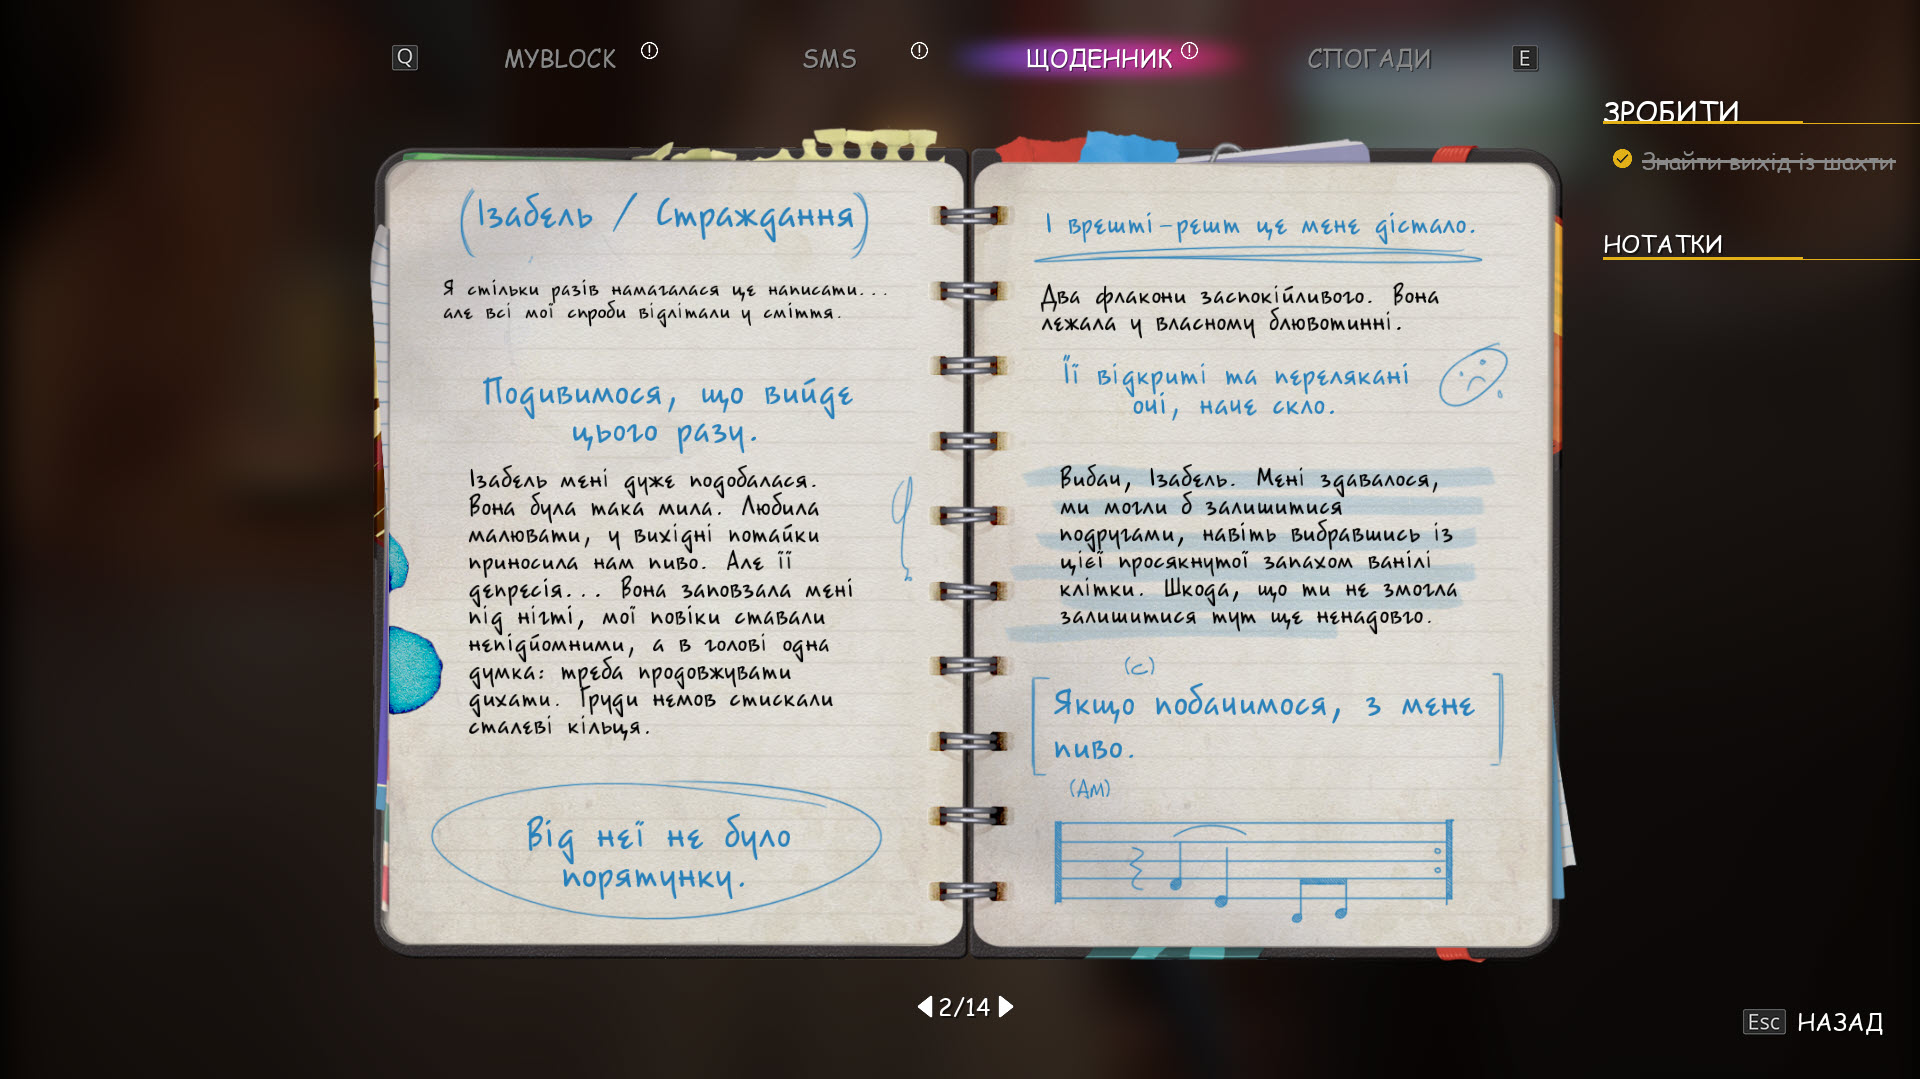 Q
MYBLOCK
SMS
ЩОДЕННИК
СПОГАДИ
E
ЗРОБИТИ
Знайти вихід із шахти
НОТАТКИ
(Ізабель / Страждання)
Я стільки разів намагалася це написати...
але всі мої спроби відлітали у сміття.
Подивимося, що вийде
цього разу.
Ізабель мені дуже подобалася.
Вона була така мила. Любила
малювати, у вихідні потайки
приносила нам пиво. Але її
депресія... Вона заповзала мені
під нігті, мої повіки ставали
непідйомними, а в голові одна
думка: треба продовжувати
дихати. Груди немов стискали
сталеві кільця.
Від неї не було
порятунку.
І врешті-решт це мене дістало.
Два флакони заспокійливого. Вона
лежала у власному блювотинні.
Її відкриті та перелякані
очі, наче скло.
Вибач, Ізабель. Мені здавалося,
ми могли б залишитися
подругами, навіть вибравшись із
цієї просякнутої запахом ванілі
клітки. Шкода, що ти не змогла
залишитися тут ще ненадовго.
(C)
Якщо побачимося, з мене
пиво.
(Am)
2/14
Esc НАЗАД